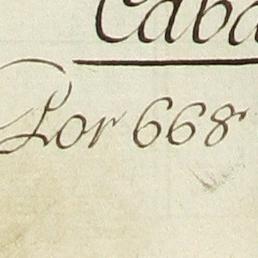 Caba
Por 668